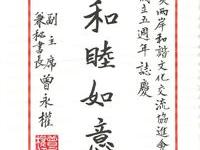 兩岸和諧文化交流協進會
成立五週年誌慶
和睦如意
副主席
兼秘書長
曾永權